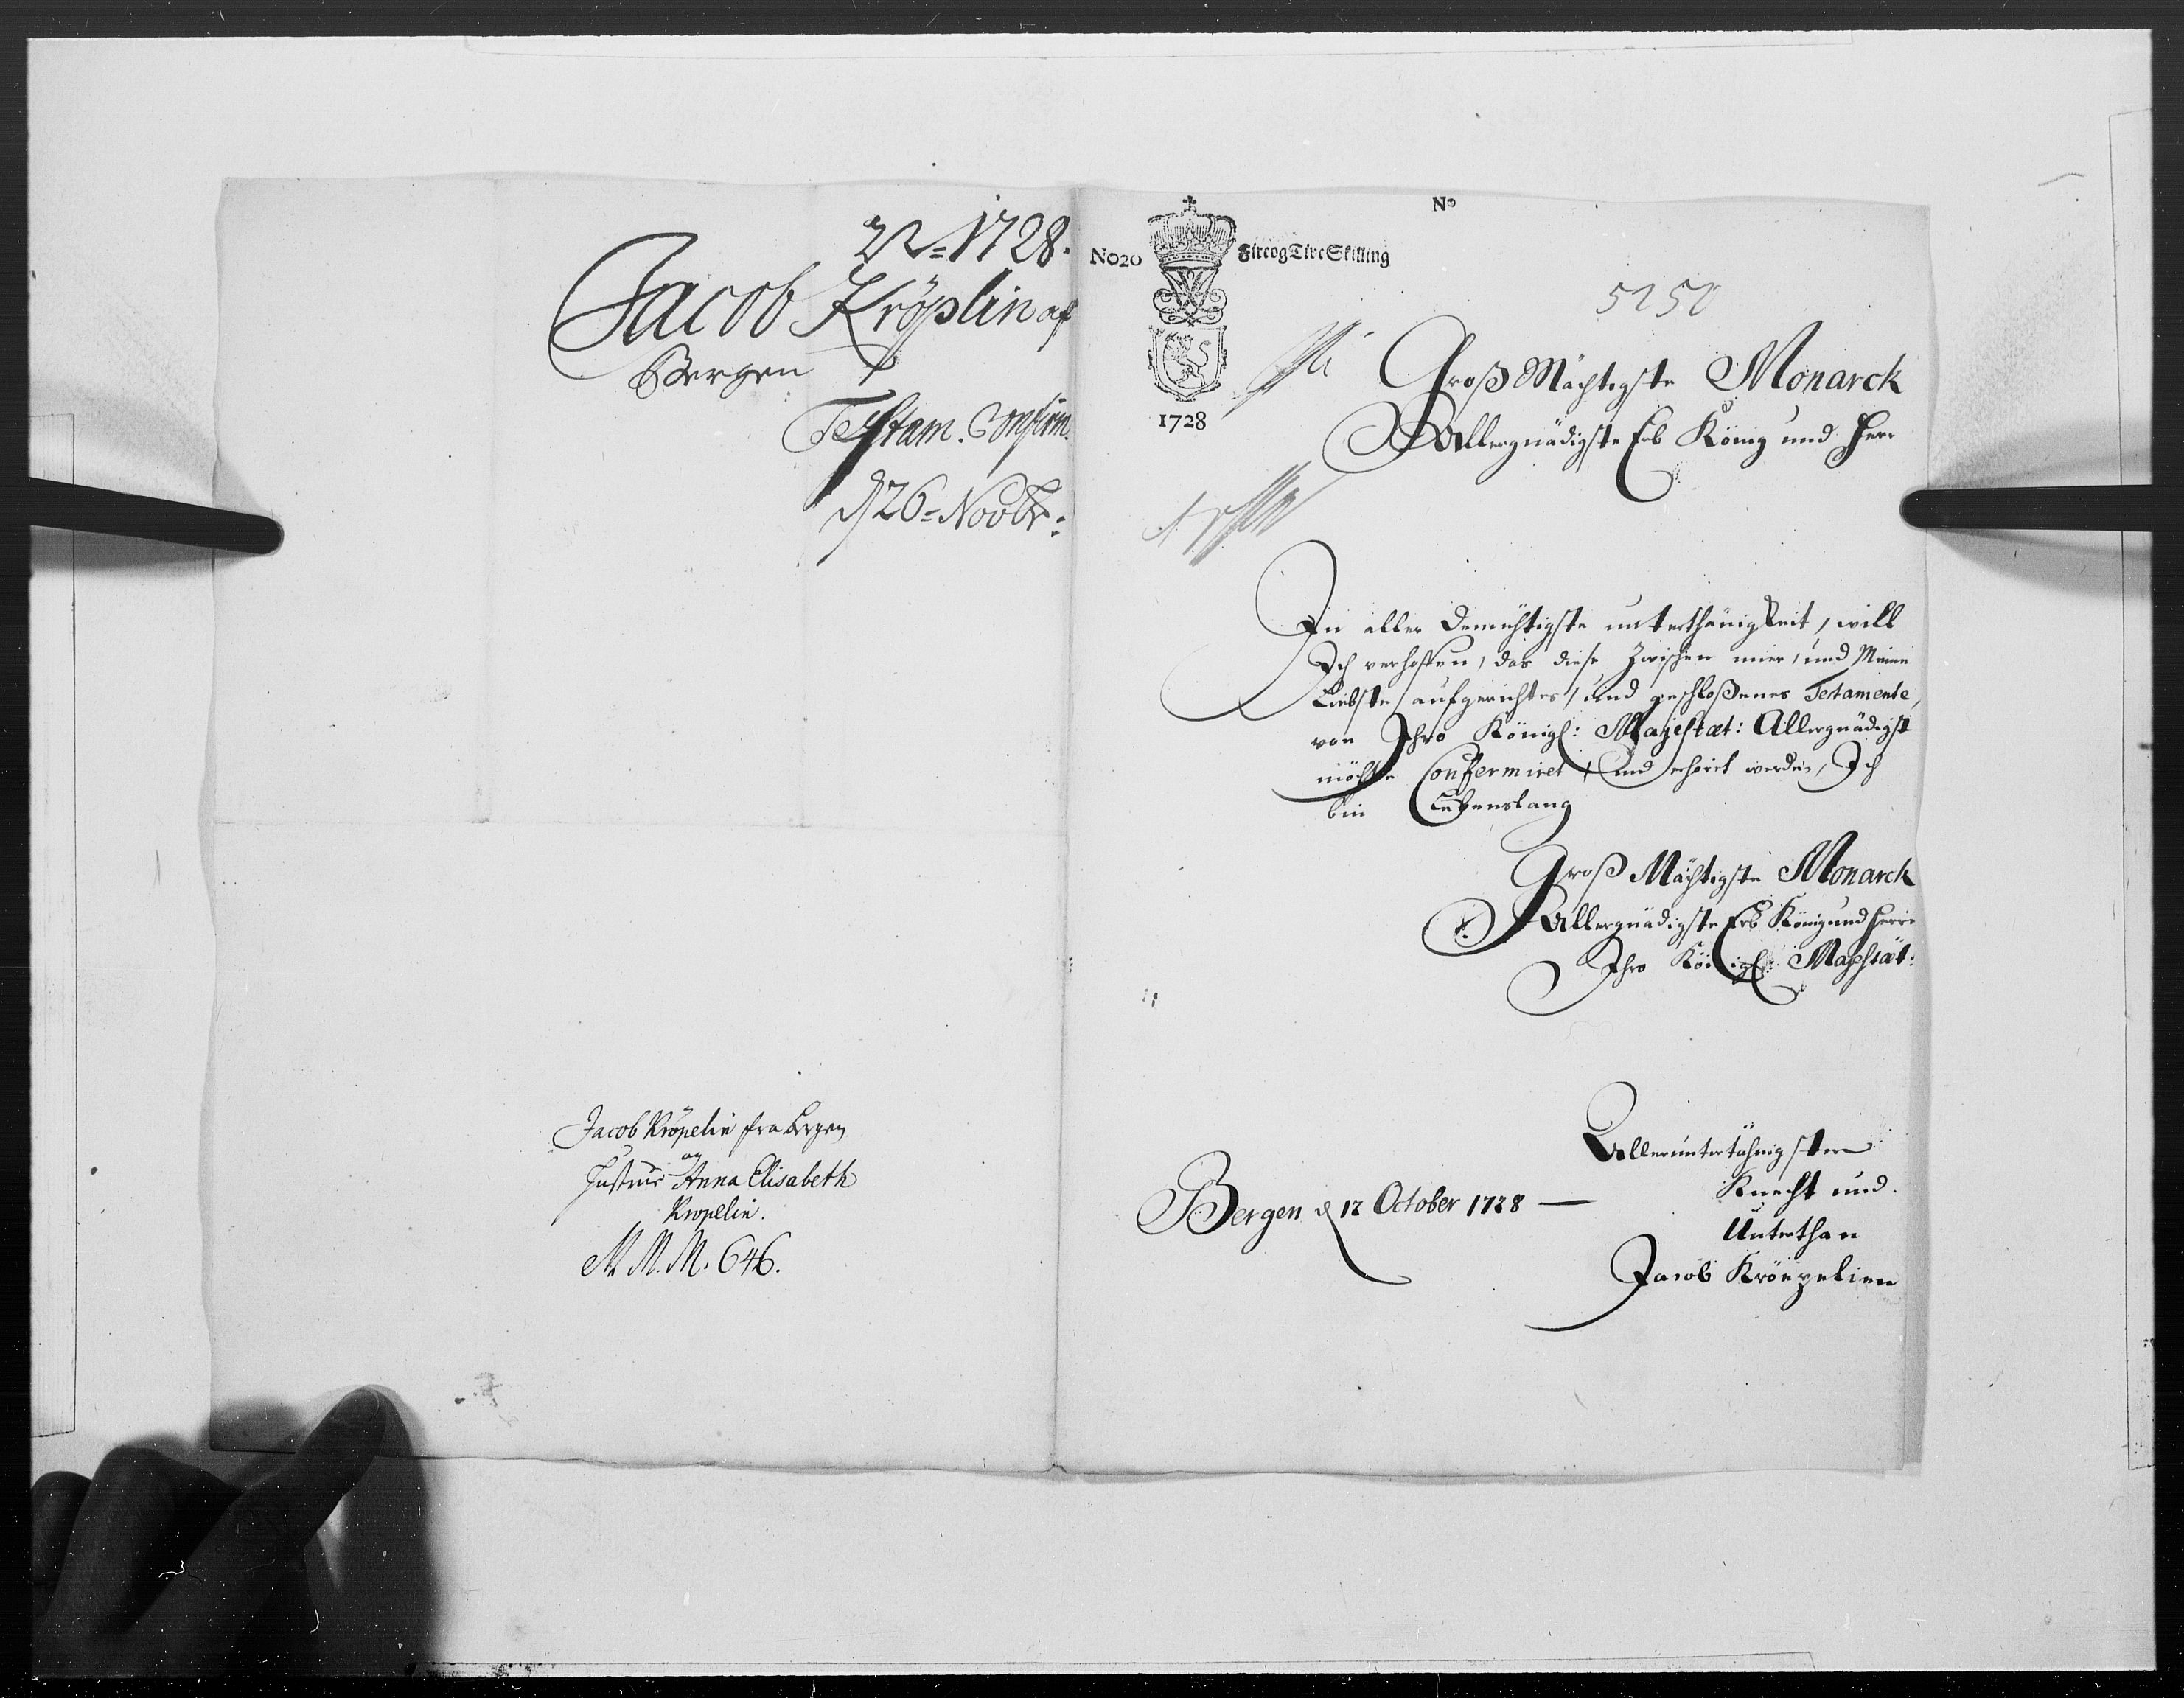 1728.
Jacob Kröplin af
Bergen
Testam. Confirm.
d 26 = Novbr:
Jacob Kröpelin fra Bergen
og
Hustrue Anna Elisabeth
Kröpelin.
N. M. M. 646.
No
No20 Fire og Tive Skilling
1728
5150
Groß Mächtigste Monarck
Allergnädigste Erb König und Herr
In aller Demühtigste unterthänigkeit, will
Ich verhoffen, das diese Zwischen mier, und Meine
Liebste aufgerichtes, und geschloßenes Testamente,
von Ihro Königl: Majestæt: Allergnädigst
möchte Confermiret, und erhört werden, Ich
bin Lebenslang
Groß Mächtigste Monarck
Allergnädigste Erb König und Herre
Ihro Königl: Mayestät:
Allerunterthänigster
Knecht und
Unterthan
Bergen d 12 October 1728 —
Jacob Kröepelien